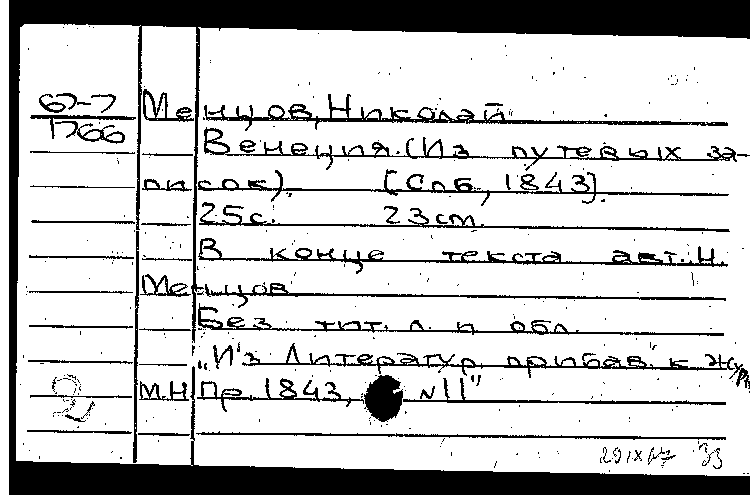 67-7
1766
Менцов, Николай
Венеция. (Из путевых за-
писок). [Спб, 1843].
25с. 23см.
В конце текста авт.: Н.
Менцов
Без тит. л. и обл.
„Из Литератур. прибав." к Жур
М.Н.Пр. 1843, №11"
2
29 IX 67 33